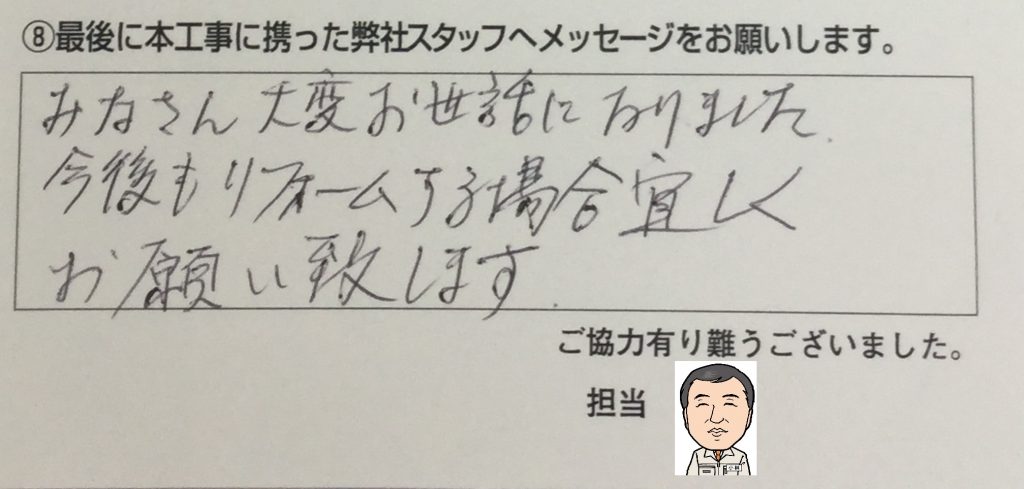 ⑧最後に本工事に携った弊社スタッフへメッセージをお願いします。
みなさん大変お世話になりました.
今後もリフォームする場合宜しく
お願い致します.
ご協力有り難うございました。
担当